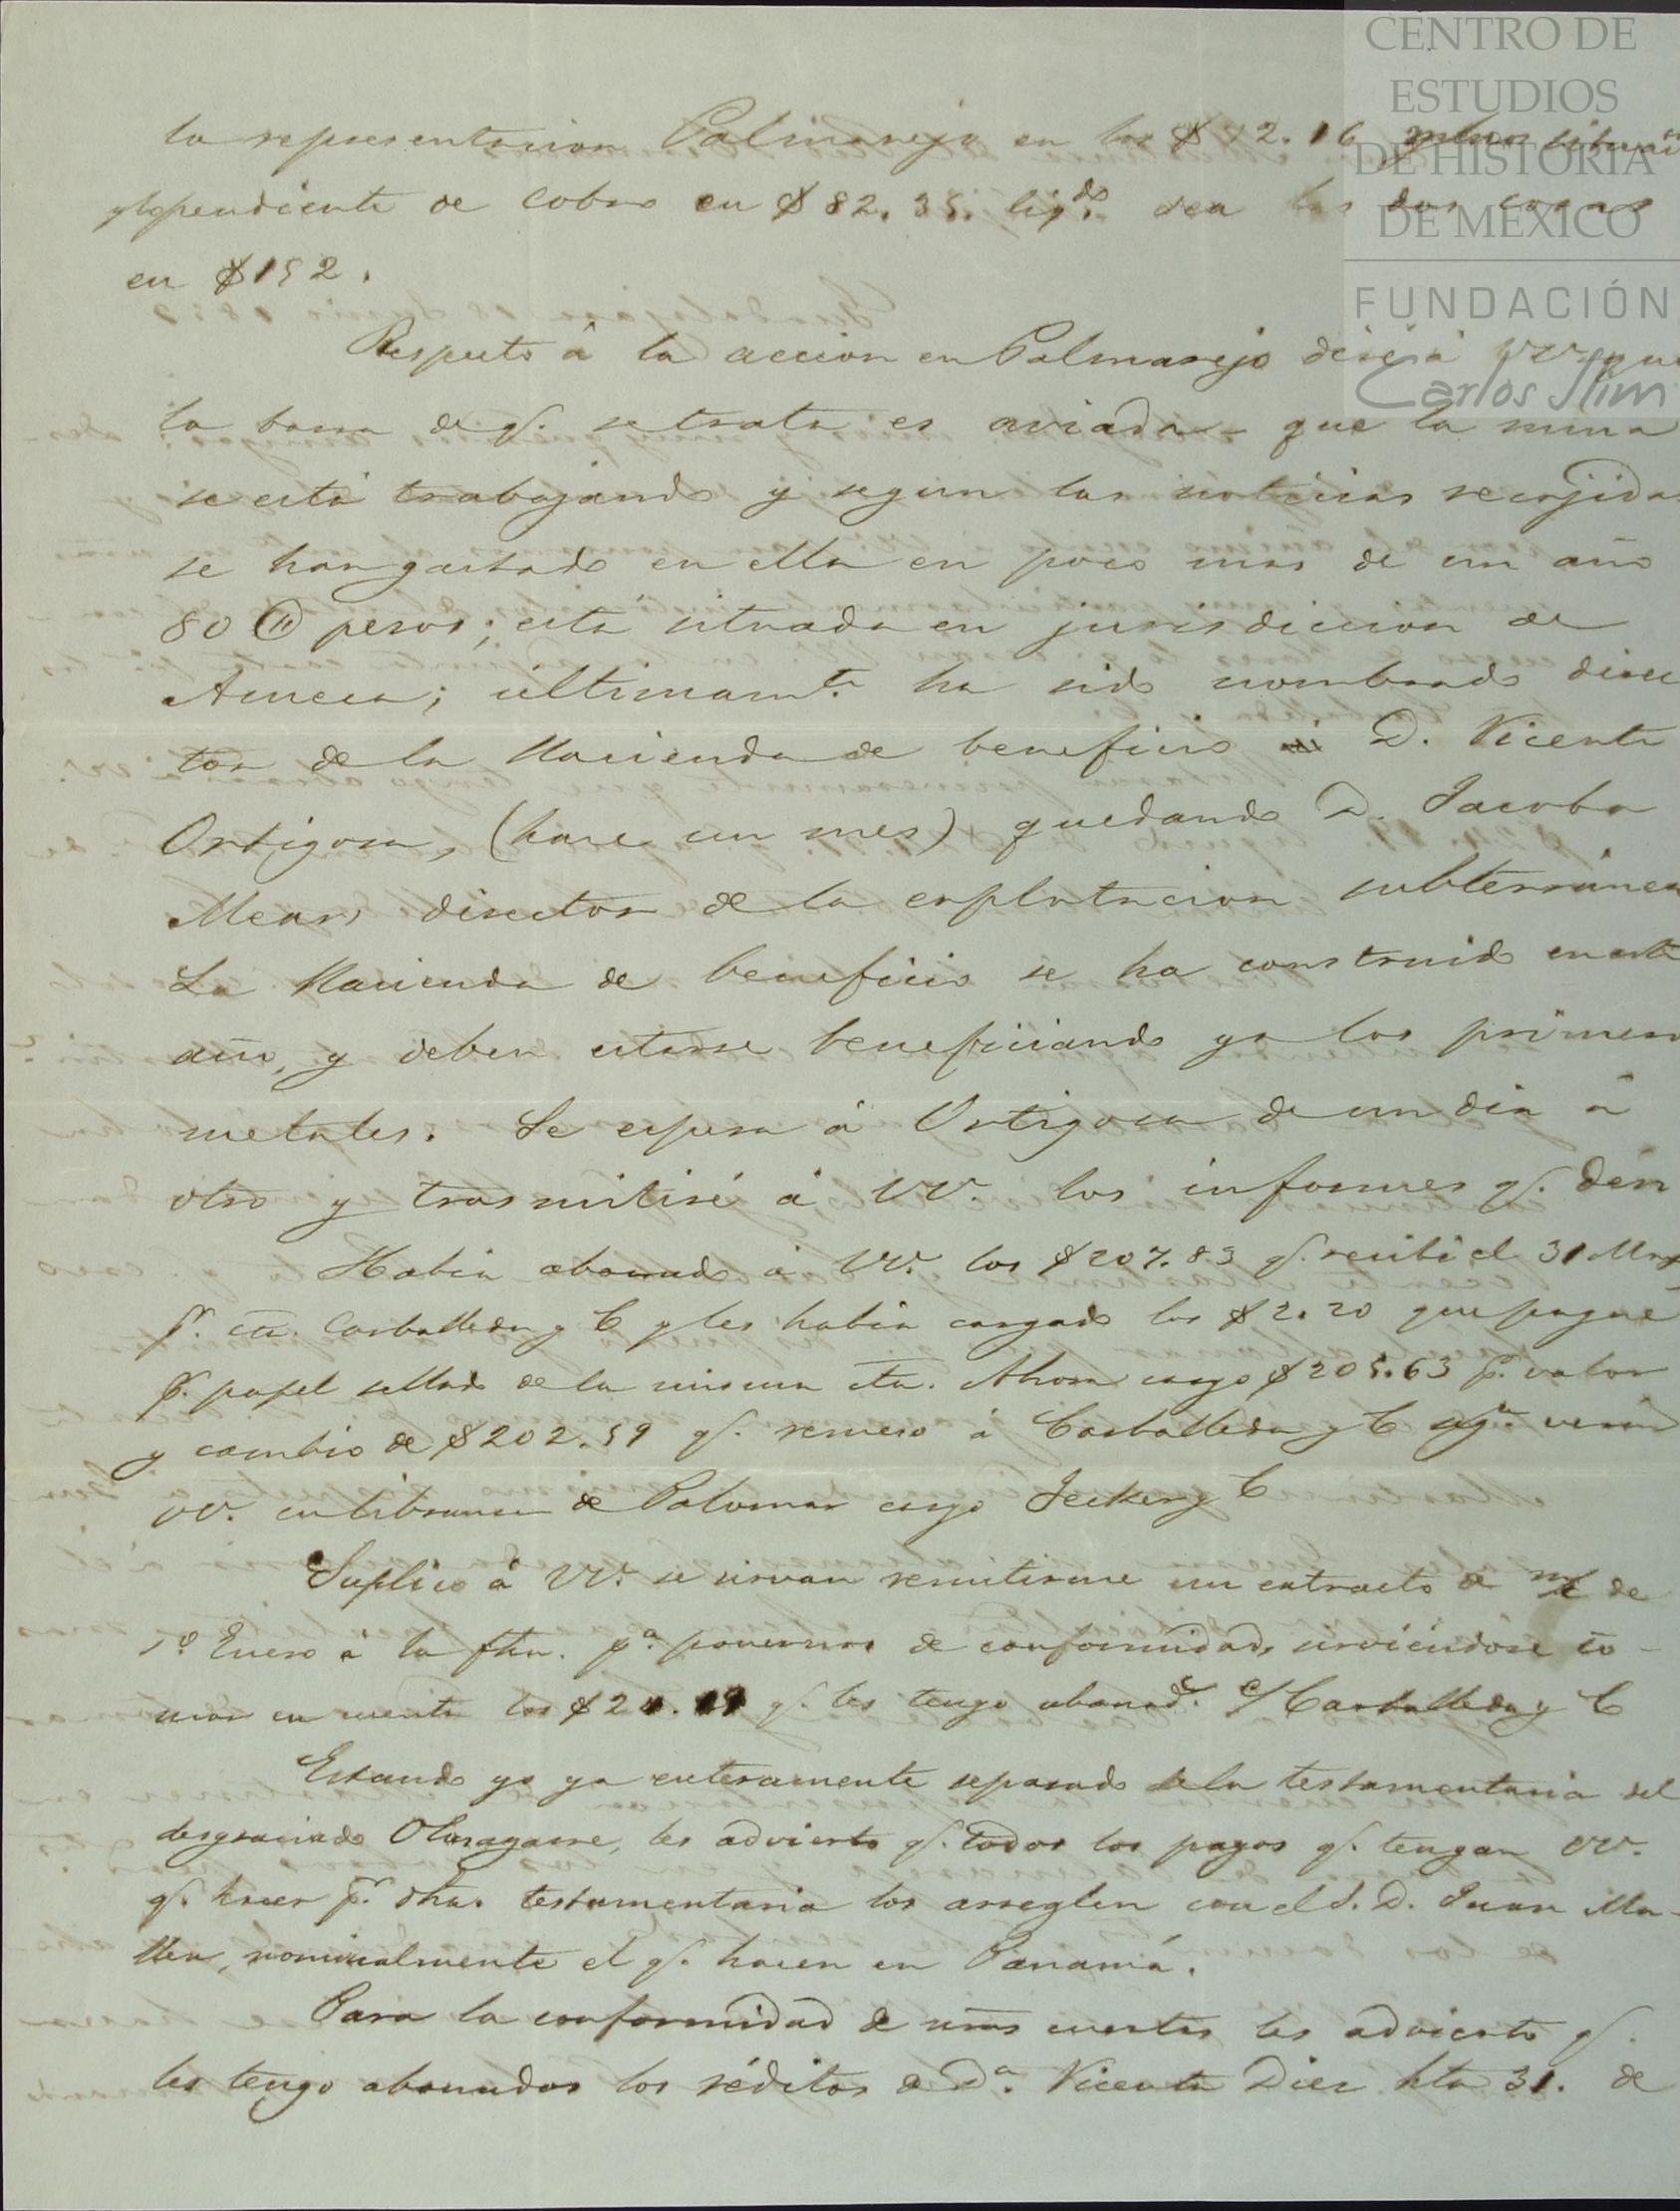 CENTRO DE
ESTUDIOS
DE HISTORIA
DE MÉXICO
FUNDACIÓN
Carlos Slim
la representacion Palmarejo en los $12.16
pendiente de cobro en $82.35. liqdo. sea las dos cosas
en $152.
Respecto á la accion en Palmarejo diré á VV. que
la barra de q. se trata es aviada - que la mina
se está trabajando y segun las noticias recojidas
se han gastado en ella en poco mas de un año
80 pesos; está situada en jurisdiccion de
Ameca; ultimamte. ha sido nombrado direc
tor de la Hacienda de beneficio D. Vicente
Ortigosa, (hace un mes) quedando D. Jacobo
Mears director de la explotacion subterránea
La Hacienda de beneficio se ha construido en este
año, y deben estarse beneficiando ya los primeros
metales. Se espera á Ortigosa de un dia á
otro y trasmitiré á VV. los informes q. dén
Habia abonado á VV. los $207.83 q. recibí el 31 May
pr. cta. Carballeda y C y les habia cargado los $2.20 que pagué
p. papel sellado de la misma cta. Ahora cargo $205.63 p. valor
y cambio de $202.59 q. remeso á Carballeda y C verán
VV. en libranza de Palomar cargo Jecker y C
Suplico á VV. se sirvan remitirme un extracto de m/c de
1o. Enero á la fha. pa. ponernos de conformidad, sirviéndose to-
mar en cuenta los $24.19 q. les tengo abonads. c/ Carballeda y C
Estando yo ya enteramente separado de la testamentaria del
desgraciado Olasagarre, les advierto q. todos los pagos q. tengan VV.
q. hacer pr. dha. testamentaria los arreglen con el S. D. Juan Ma-
llen, nominalmente el q. hacen en Panamá.
Para la conformidad de nras cuentas les advierto q.
les tengo abonados los réditos de Da. Vicenta Diez hta 31. de